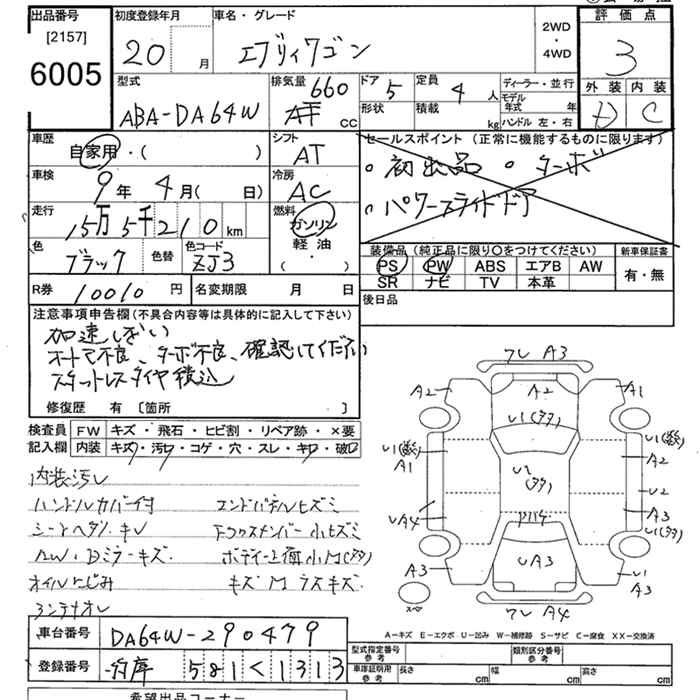 出品番号 初度登録年月 車名・グレード 2WD・4WD 評価点
[2157]
6005 20 月 エブリィワゴン 3
型式 排気量 ドア 定員 ディーラー・並行 外装 内装
ABA-DA64W 660 cc 5 4 人 モデル年式 年 D C
形状 積載 kg ハンドル 左・右
車歴 シフト セールスポイント (正常に機能するものに限ります)
自家用・( ) AT 初出品 ターボ
車検 冷房
9年 4月( 日) AC パワースライドドア
走行 燃料
15万5千210km ガソリン
色 色替 色コード 軽油 装備品 (純正品に限り○をつけてください) 新車保証書
ブラック ZJ3 ( ・ ) PS PW ABS エアB AW 有・無
SR ナビ TV 本革
R券 10010円 名変期限 月 日 後日品
注意事項申告欄(不具合内容等は具体的に記入して下さい)
加速しない
オートマ不良、ターボ不良、確認してください
スタットレスタイヤ積込
修復歴 有 [箇所 ]
検査員 FW キズ・飛石・ヒビ割・リペア跡・×要
記入欄 内装 キズ・汚・コゲ・穴・スレ・キレ・破
内装汚レ
ハンドルカバー付 エンドパネルヒズミ
シートヘタリ・キレ
AW・Dミラーキズ
オイルにじみ
フレ A3
A2 A2 A1
U1(タタ)
A1 A2
U2
UA4 A3
U1(タタ)
A3 UA3 U1 A3
スペ フレ A4
A-キズ E-エクボ U-凹み W-補修跡 S-サビ C-腐食 XX-交換済
車台番号 DA64W-290479
登録番号 581 く 1313
型式指定番号 参考 類別区分番号 参考
車庫証明用 参考 長さ cm 幅 cm 高さ cm
希望出品コーナー